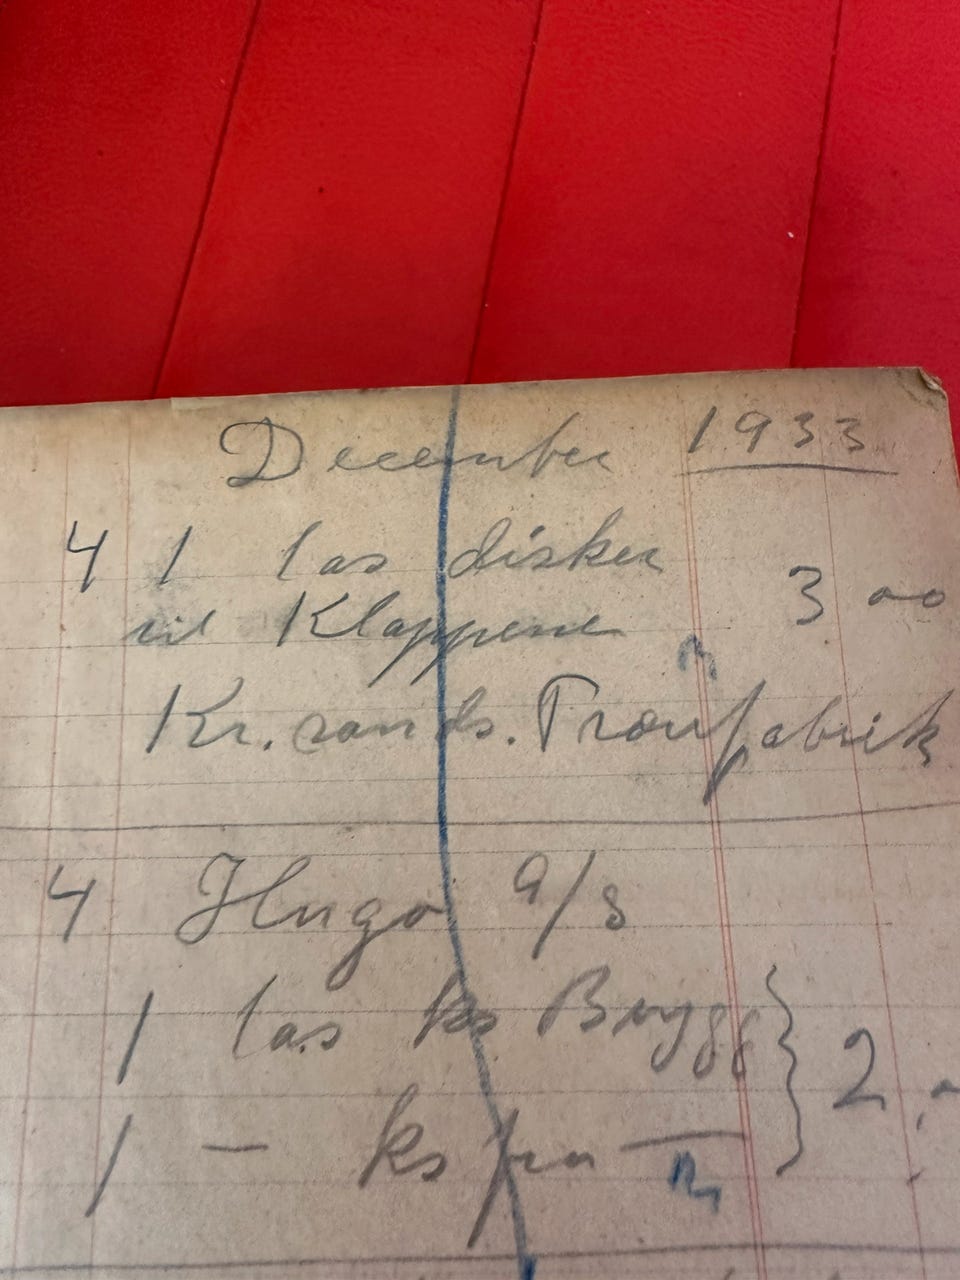 December 1933
4 1 las disker
til Klappene 3 00
Kr.sands. Trævfabrik
4 Hugo a/s
1 las ks Brygg } 2,-
1 — ks fra —